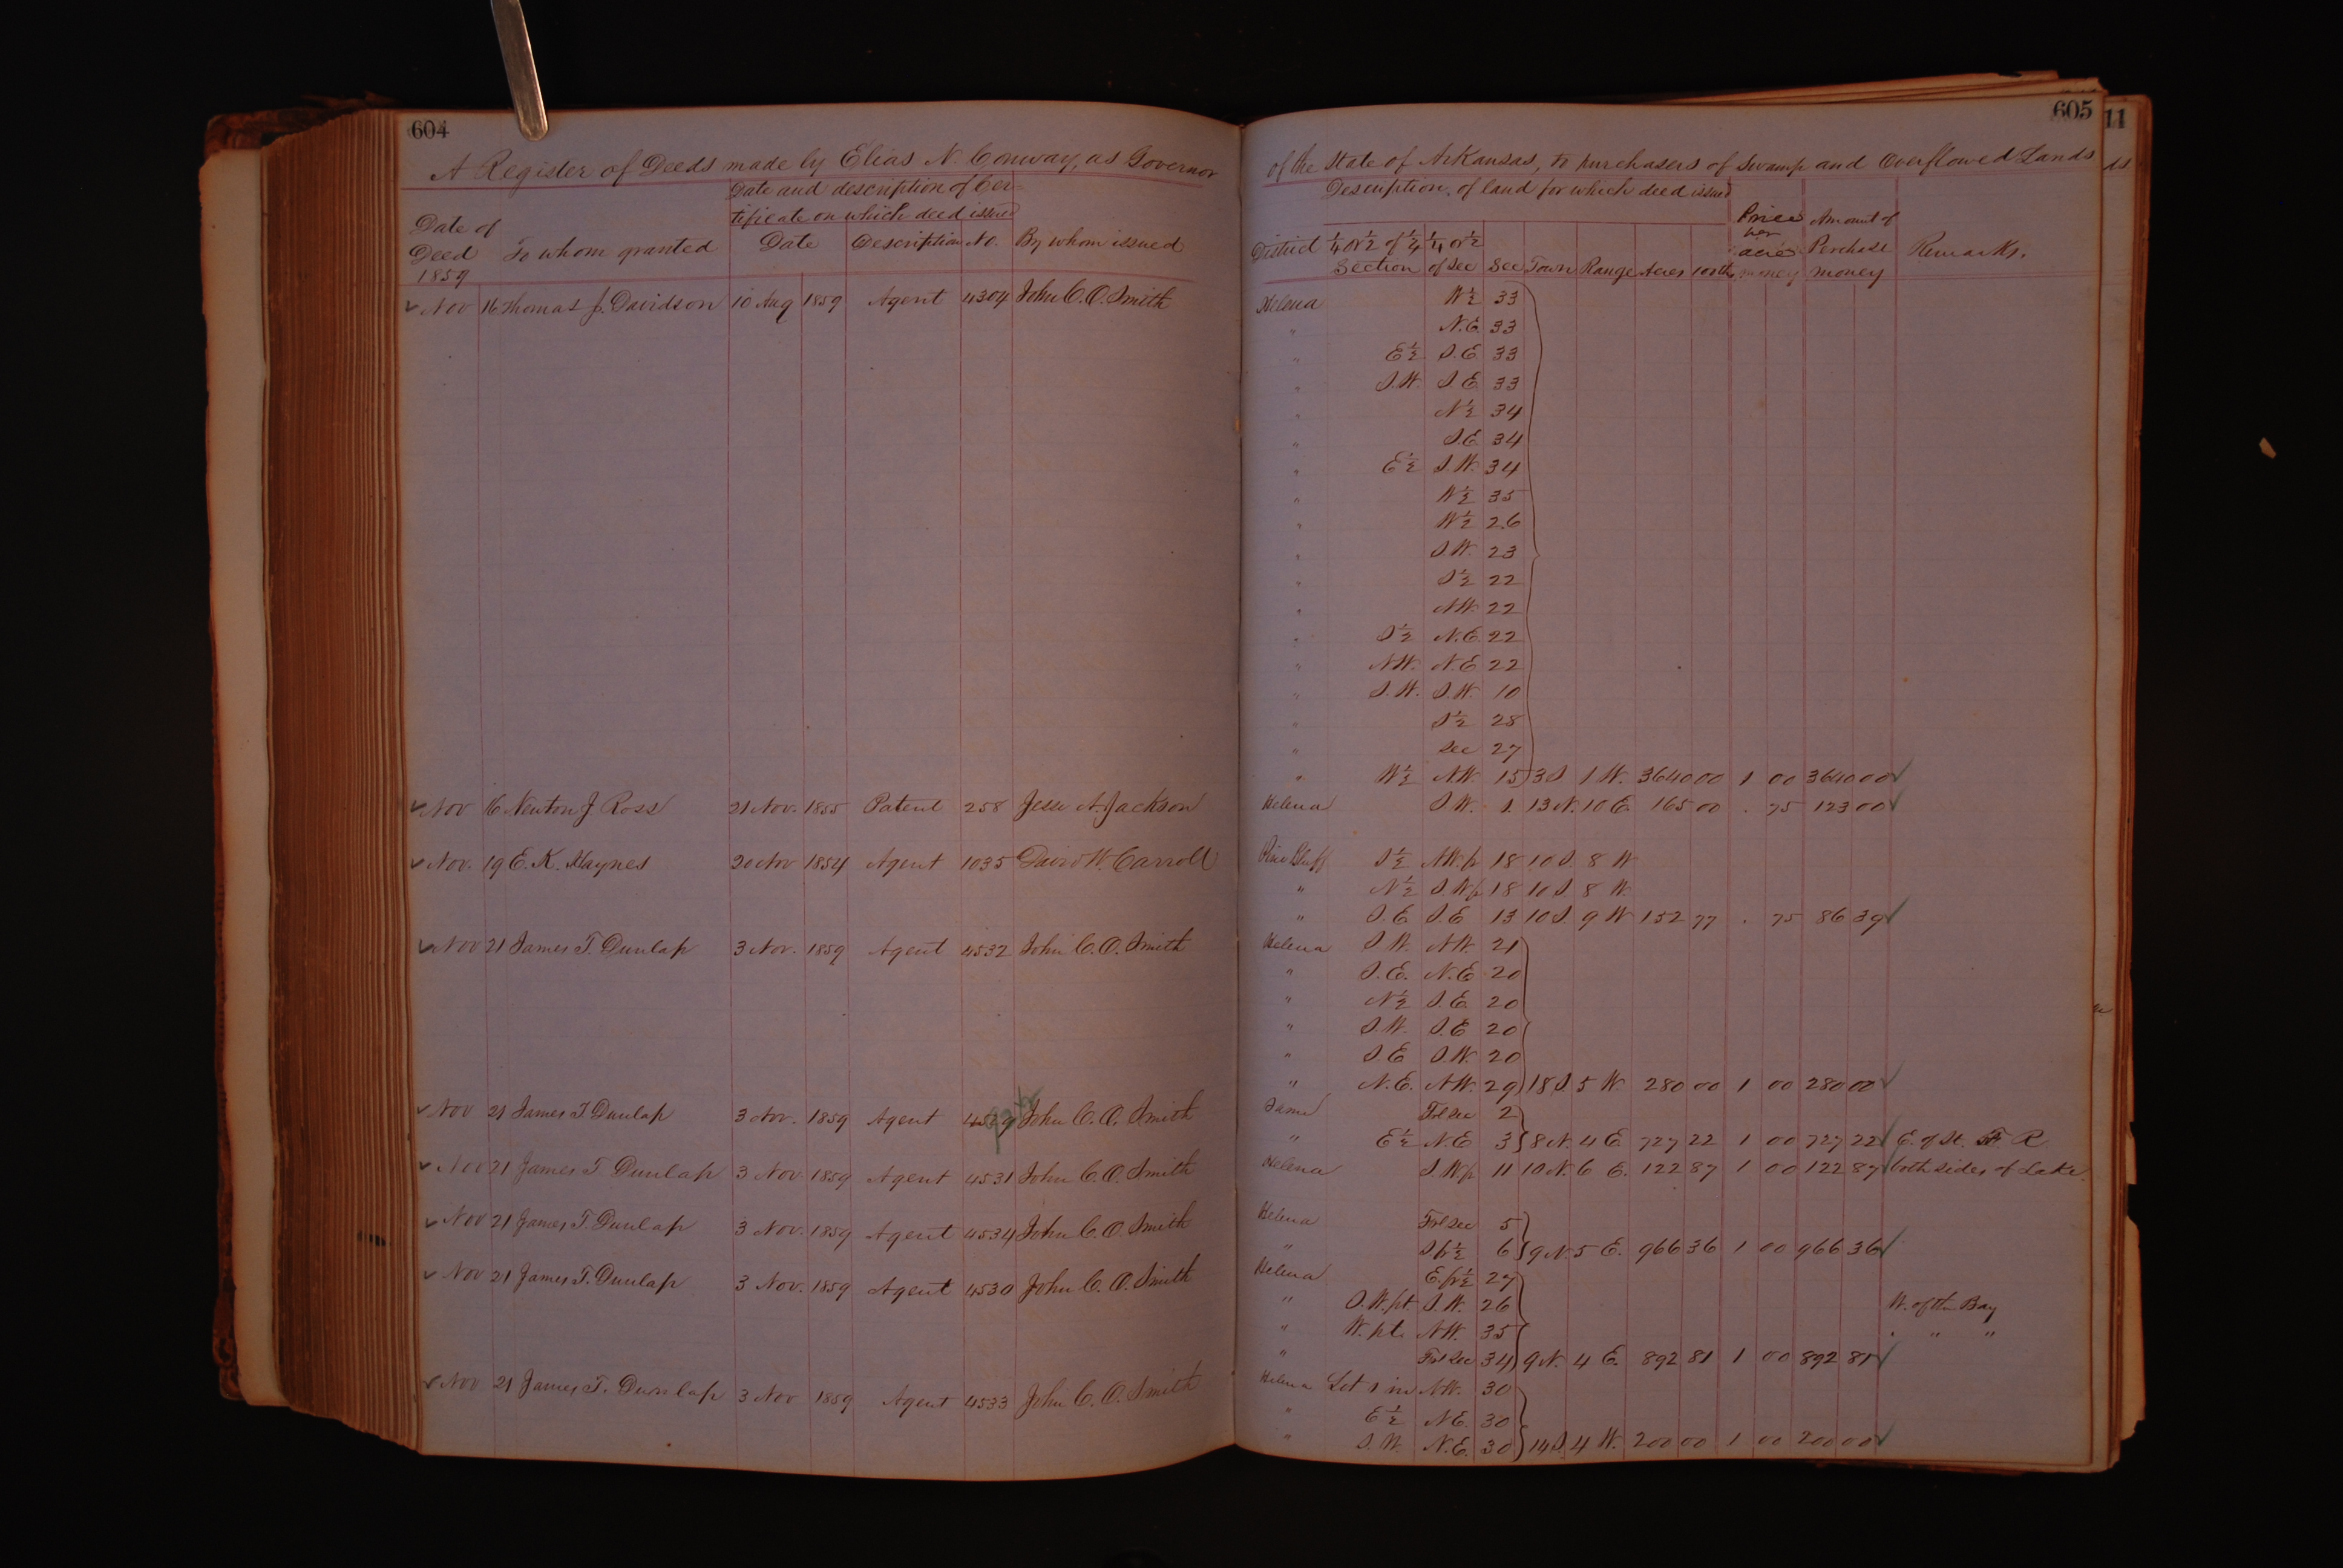 604
A Register of Deeds made by Elias N. Conway, as Governor
Date and description of Cer-
tificate on which deed issued
Date of
Deed To whom granted Date Description No. By whom issued
1859
Nov 16 Thomas J. Davidson 10 Aug 1859 Agent 4304 John C. O. Smith
Nov 16 Newton J Ross 21 Nov. 1855 Patent 258 Jesse A. Jackson
Nov. 19 E. K. Haynes 20 Nov 1854 Agent 1035 David W. Carroll
Nov 21 James T. Dunlap 3 Nov. 1859 Agent 4532 John C. O. Smith
Nov 21 James T Dunlap 3 Nov. 1859 Agent 4529 John C. O. Smith
Nov 21 James T Dunlap 3 Nov. 1859 Agent 4531 John C. O. Smith
Nov 21 James T. Dunlap 3 Nov. 1859 Agent 4534 John C. O. Smith
Nov 21 James T. Dunlap 3 Nov. 1859 Agent 4530 John C. O. Smith
Nov 21 James T. Dunlap 3 Nov 1859 Agent 4533 John C. O. Smith
605
11
of the State of Arkansas, to purchasers of Swamp and Overflowed Lands
ds
Description of land for which deed issued
Price Amount of
per
District ¼ or ½ of ¼ ¼ or ½ acre Perchase Remarks.
Section of Sec Sec Town Range Acres 100ths money money
Helena W½ 33
" N.E. 33
" E½ S.E. 33
" S.W. S.E. 33
" N½ 34
" S.E. 34
" E½ S.W. 34
" W½ 35
" W½ 26
" S.W. 23
" S½ 22
" N.W. 22
" S½ N.E. 22
" N.W. N.E. 22
" S.W. S.W. 10
" S½ 28
" Sec 27
" W½ N.W. 15 3 S 1 W. 3640 00 1 00 3640 00
Helena S.W. 1. 13 N. 10 E 165 00 . 75 123 00
Pine Bluff S½ N.W.fr 18 10 S. 8 W
" N½ S.W.fr 18 10 S 8 W.
" S.E S.E 13 10 S. 9 W 152 77 . 75 86 39
Helena S.W. N.W. 21
" S.E. N.E 20
" N½ S.E. 20
" S.W. S.E 20
" S.E S.W. 20
" N.E. N.W. 29 18 S 5 W. 280 00 1 00 280 00
Same Frl Sec 2
" E½ N.E 3 8 N. 4 E 727 22 1 00 727 22 E. of St. F R
Helena S.W.fr 11 10 N. 6 E. 122 87 1 00 122 87 both sides of Lake.
Helena Frl Sec 5
" S.fr½ 6 9 N. 5 E. 966 36 1 00 966 36
Helena E.fr½ 27
" S.W.pt S.W. 26 W. of the Bay
" W. pt. N.W. 35 " " "
" Frl Sec 34 9 N. 4 E. 892 81 1 00 892 81
Helena Lot 1 in N.W. 30
" E½ N.E. 30
" S.W. N.E. 30 14 S. 4 W. 200 00 1 00 200 00